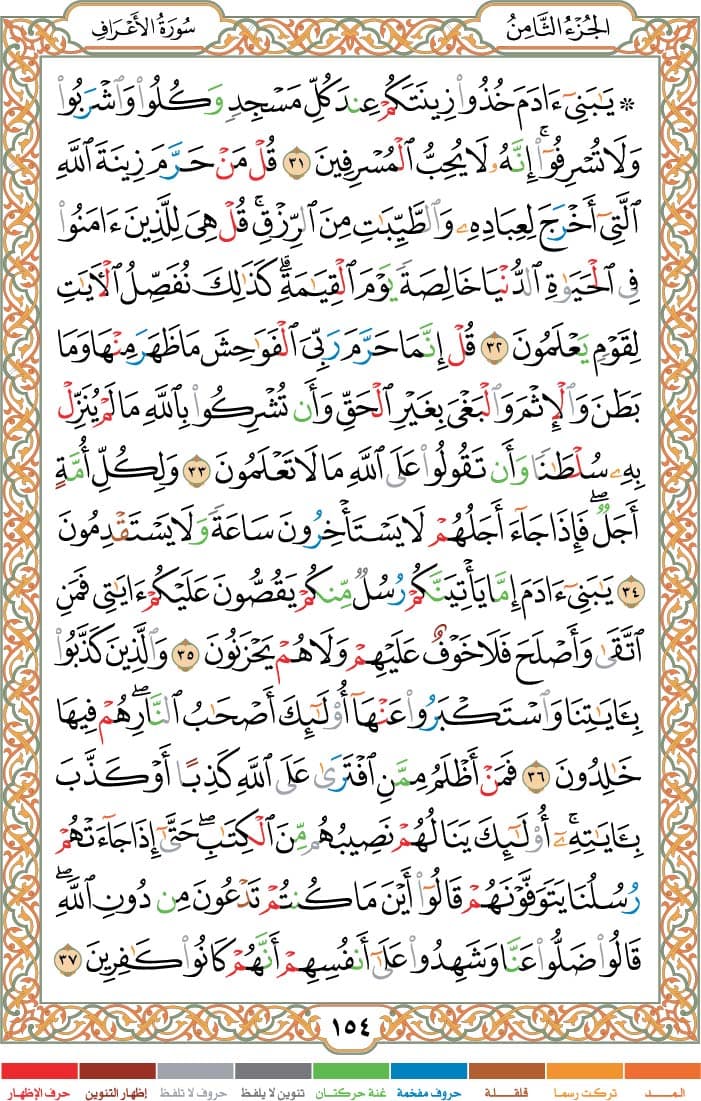 الجُزْءُ الثَّامِنُ
سُورَةُ الأَعْرَافِ
۞ يَٰبَنِىٓ ءَادَمَ خُذُوا۟ زِينَتَكُمْ عِندَ كُلِّ مَسْجِدٍ وَكُلُوا۟ وَٱشْرَبُوا۟
وَلَا تُسْرِفُوٓا۟ ۚ إِنَّهُۥ لَا يُحِبُّ ٱلْمُسْرِفِينَ ٣١ قُلْ مَنْ حَرَّمَ زِينَةَ ٱللَّهِ
ٱلَّتِىٓ أَخْرَجَ لِعِبَادِهِۦ وَٱلطَّيِّبَٰتِ مِنَ ٱلرِّزْقِ ۚ قُلْ هِىَ لِلَّذِينَ ءَامَنُوا۟
فِى ٱلْحَيَوٰةِ ٱلدُّنْيَا خَالِصَةً يَوْمَ ٱلْقِيَٰمَةِ ۗ كَذَٰلِكَ نُفَصِّلُ ٱلْءَايَٰتِ
لِقَوْمٍ يَعْلَمُونَ ٣٢ قُلْ إِنَّمَا حَرَّمَ رَبِّىَ ٱلْفَوَٰحِشَ مَا ظَهَرَ مِنْهَا وَمَا
بَطَنَ وَٱلْإِثْمَ وَٱلْبَغْىَ بِغَيْرِ ٱلْحَقِّ وَأَن تُشْرِكُوا۟ بِٱللَّهِ مَا لَمْ يُنَزِّلْ
بِهِۦ سُلْطَٰنًا وَأَن تَقُولُوا۟ عَلَى ٱللَّهِ مَا لَا تَعْلَمُونَ ٣٣ وَلِكُلِّ أُمَّةٍ
أَجَلٌ ۖ فَإِذَا جَآءَ أَجَلُهُمْ لَا يَسْتَأْخِرُونَ سَاعَةً وَلَا يَسْتَقْدِمُونَ
٣٤ يَٰبَنِىٓ ءَادَمَ إِمَّا يَأْتِيَنَّكُمْ رُسُلٌ مِّنكُمْ يَقُصُّونَ عَلَيْكُمْ ءَايَٰتِى فَمَنِ
ٱتَّقَىٰ وَأَصْلَحَ فَلَا خَوْفٌ عَلَيْهِمْ وَلَا هُمْ يَحْزَنُونَ ٣٥ وَٱلَّذِينَ كَذَّبُوا۟
بِـَٔايَٰتِنَا وَٱسْتَكْبَرُوا۟ عَنْهَآ أُو۟لَٰٓئِكَ أَصْحَٰبُ ٱلنَّارِ ۖ هُمْ فِيهَا
خَٰلِدُونَ ٣٦ فَمَنْ أَظْلَمُ مِمَّنِ ٱفْتَرَىٰ عَلَى ٱللَّهِ كَذِبًا أَوْ كَذَّبَ
بِـَٔايَٰتِهِۦٓ ۚ أُو۟لَٰٓئِكَ يَنَالُهُمْ نَصِيبُهُم مِّنَ ٱلْكِتَٰبِ ۖ حَتَّىٰٓ إِذَا جَآءَتْهُمْ
رُسُلُنَا يَتَوَفَّوْنَهُمْ قَالُوٓا۟ أَيْنَ مَا كُنتُمْ تَدْعُونَ مِن دُونِ ٱللَّهِ ۖ
قَالُوا۟ ضَلُّوا۟ عَنَّا وَشَهِدُوا۟ عَلَىٰٓ أَنفُسِهِمْ أَنَّهُمْ كَانُوا۟ كَٰفِرِينَ ٣٧
١٥٤
المـــد تركت رسما قلقـــلة حروف مفخمة غنة حركتان تنوين لا يلفظ حروف لا تلفظ إظهار التنوين حرف الإظهار